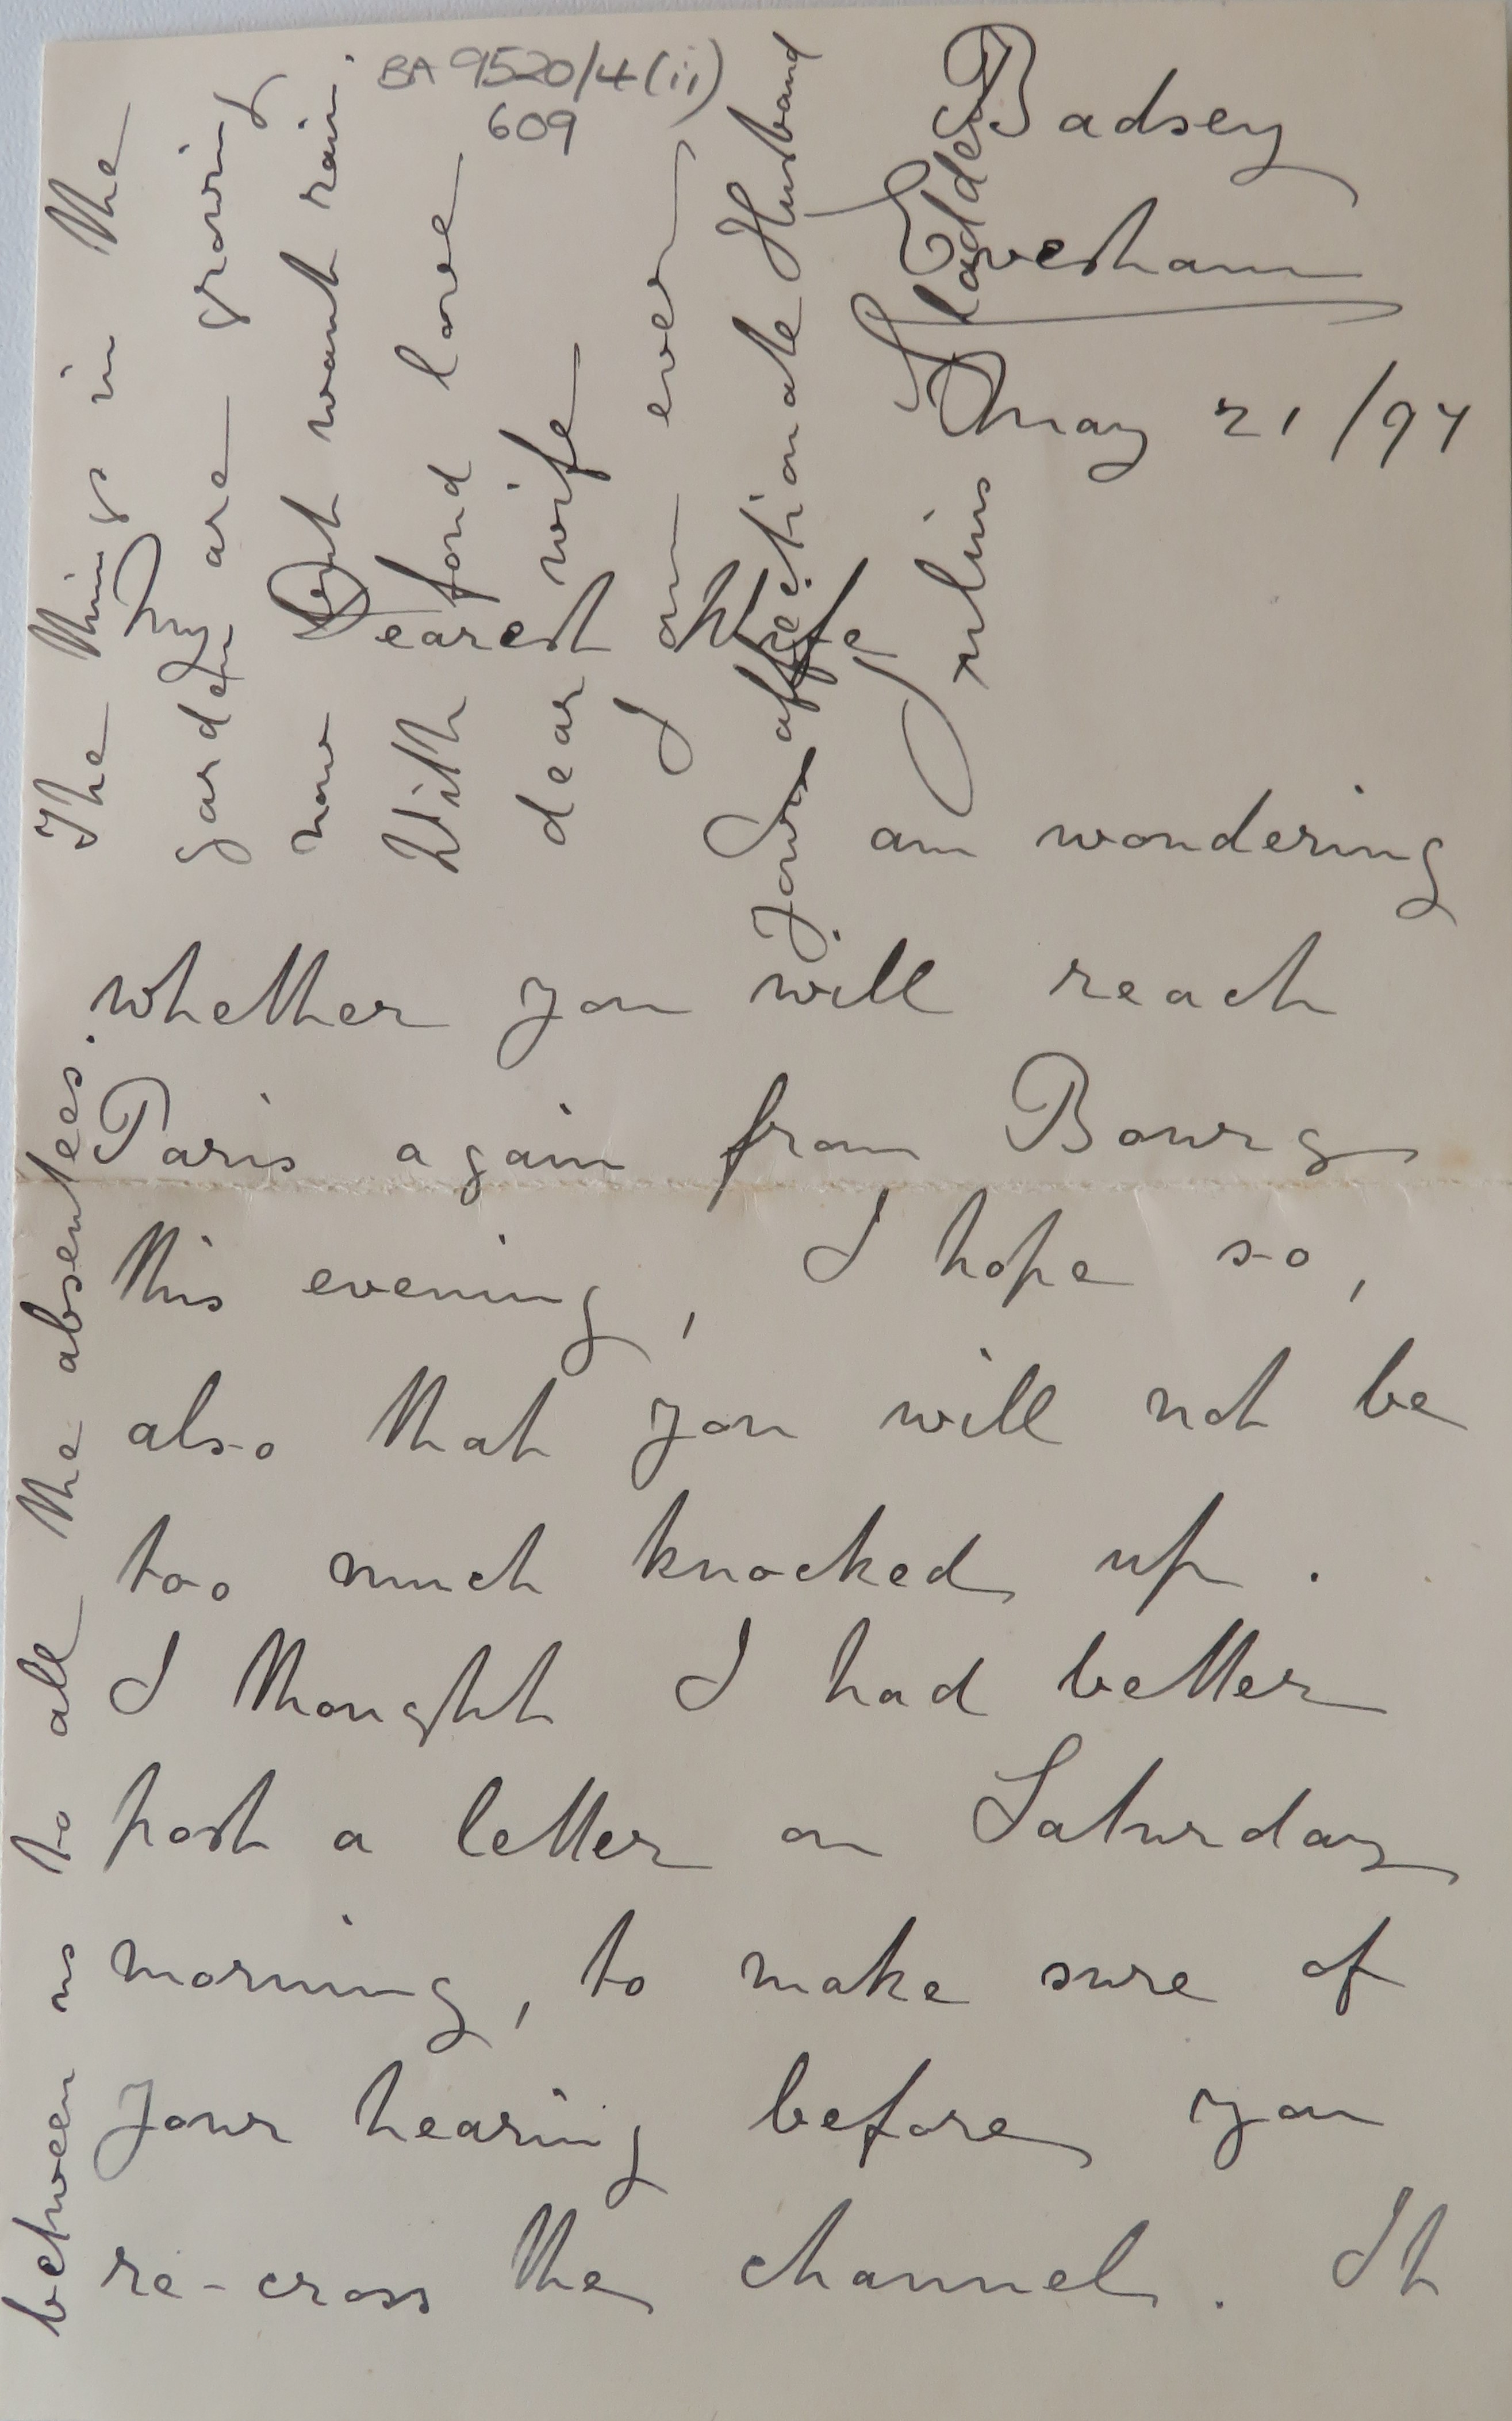 BA 9520/4(ii)
609
Badsey
Evesham
May 21/97
My Dearest Wife
I am wondering
whether you will reach
Paris again from Bourg
this evening, I hope so,
also that you will not be
too much knocked up.
I thought I had better
post a letter on Saturday
morning, to make sure of
your hearing before you
re-cross the channel. It
between us to all the absentees.
The things in the
garden are growing
now but want rain.
With fond love
dear wife
I am ever
your affectionate Husband
Julius Sladden